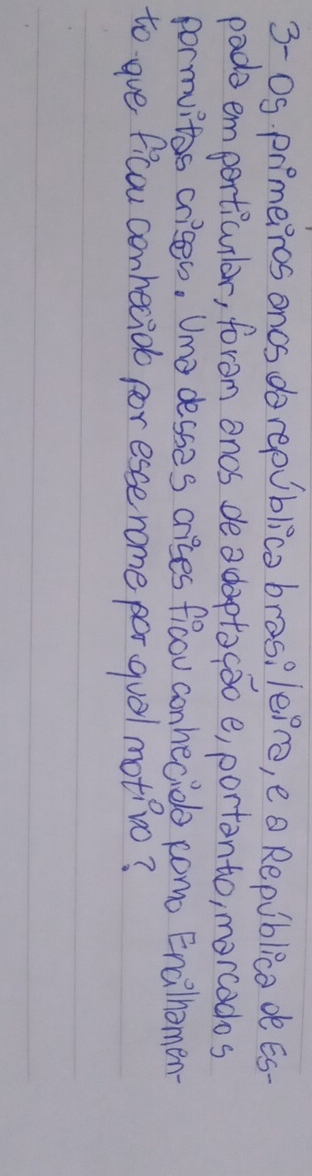 3- Os primeiros anos da república brasileira, e a República de Es-
pada em particular, foram anos de adaptação e, portanto, marcados
por muitas crises. Uma dessas crises ficou conhecida como Encilhamen-
to que ficou conhecido por esse nome por qual motivo?